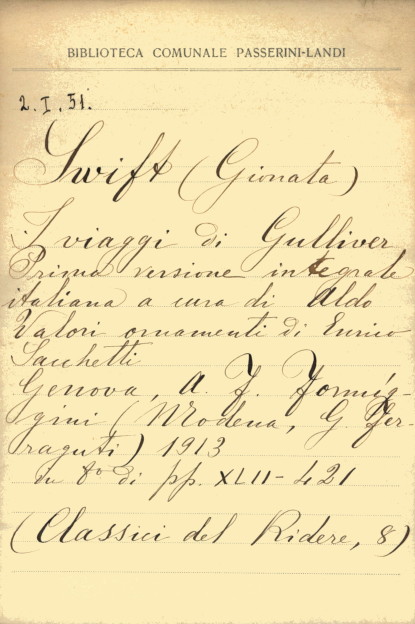 BIBLIOTECA COMUNALE PASSERINI-LANDI
2.I.51.
Swift (Gionata)
I viaggi di Gulliver
Prima versione integrale
italiana a cura di Aldo
Valori ornamenti di Enrico
Sacchetti
Genova, A. F. Formíg-
gini (Modena, G. Fer-
raguti) 1913
in 8º di pp. XLII-421
(Classici del Ridere, 8)